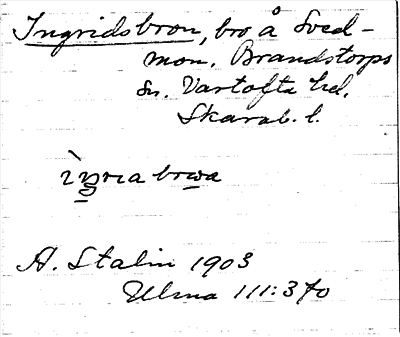 Ingridsbron, bro å Sved-
mon, Brandstorps
sn. Vartofta hd,
Skarab. l.
A. Stalin 1903
Ulma 111:370